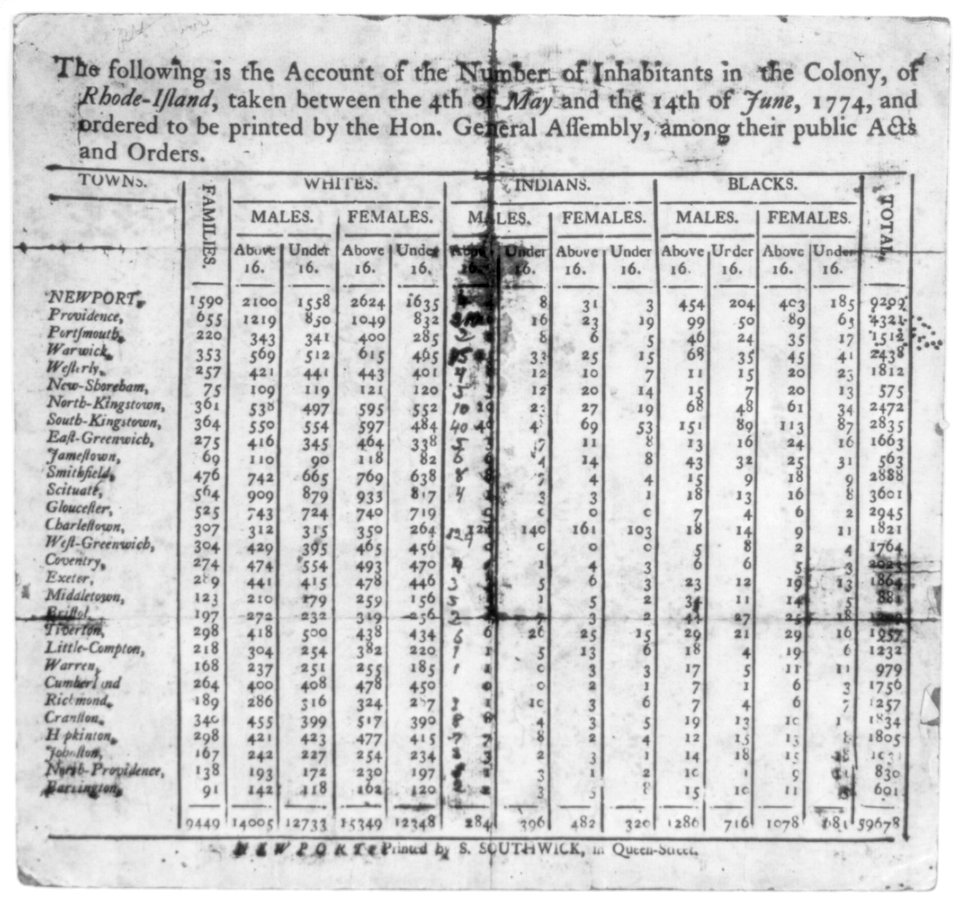 The following is the Account of the Number of Inhabitants in the Colony, of
Rhode-Iſland, taken between the 4th of May and the 14th of June, 1774, and
ordered to be printed by the Hon. General Aſſembly, among their public Acts
and Orders.
TOWNS. FAMILIES. WHITES. INDIANS. BLACKS. TOTAL.
MALES. FEMALES. MALES. FEMALES. MALES. FEMALES.
Above Under Above Under Above Under Above Under Above Under Above Under
16. 16. 16. 16. 16. 16. 16. 16. 16. 16. 16.
NEWPORT, 1590 2100 1558 2624 1635 8 31 3 454 204 403 185
Providence, 655 1219 850 1049 832 16 23 19 99 50 89 65 4321
Portſmouth, 220 343 341 400 285 8 6 5 46 24 35 17 1512
Warwick, 353 569 512 615 465 25 15 35 45 41 2438
Weſterly, 257 421 441 443 401 4 12 10 7 11 15 20 23 1812
New-Shoreham, 75 109 119 121 120 12 20 14 15 7 20 13 575
North-Kingstown, 361 538 497 595 552 10 27 19 68 48 61 34 2472
South-Kingstown, 364 550 554 597 484 40 69 53 151 89 113 87 2835
Eaſt-Greenwich, 275 416 345 464 338 7 11 8 13 16 24 16 1663
Jameſtown, 69 110 90 118 82 4 14 8 43 32 25 31 563
Smithfield, 476 742 665 769 638 8 4 4 15 9 18 9 2888
Scituate, 564 909 879 933 817 4 3 3 1 18 13 16 8 3601
Gloucefter, 525 743 724 740 719 0 0 0 7 4 6 2 2945
Charleſtown, 307 312 315 350 264 140 161 103 18 14 9 11 1821
Weſt-Greenwich, 304 429 395 465 456 0 0 0 5 8 2 4 1764
Coventry, 274 474 554 493 470 1 4 3 6 6 5 3
Exeter, 441 415 478 446 3 5 6 3 23 12 19 13 1864
Middletown, 123 210 179 259 156 1 5 2 11 5 881
Briſtol, 197 272 232 319 256 2 5 3 2 27
Tiverton, 298 418 500 438 434 6 6 26 25 15 29 21 29 16 1957
Little-Compton, 218 304 254 382 220 1 1 5 13 6 18 4 19 6 1232
Warren, 168 237 251 255 185 1 0 3 3 17 5 11 11 979
Cumberland 264 400 408 478 450 0 0 2 1 7 1 6 3 1756
Richmond, 189 286 316 324 3 10 3 6 7 4 6 7 1257
Cranſton, 340 455 399 517 390 8 8 4 3 5 19 13 10 1834
Hopkinton, 298 421 423 477 415 7 7 8 2 4 12 15 13 8 1805
Johnſton, 167 242 227 254 234 3 2 3 1 14 18 15
North-Providence, 138 193 172 230 197 3 1 2 10 1 9 830
Barrington, 91 142 118 162 120 2 3 5 8 15 10 11 601
9449 14005 12733 15349 12348 284 396 482 320 1286 716 1078 59678
NEWPORT: Printed by S. SOUTHWICK, in Queen-Street.